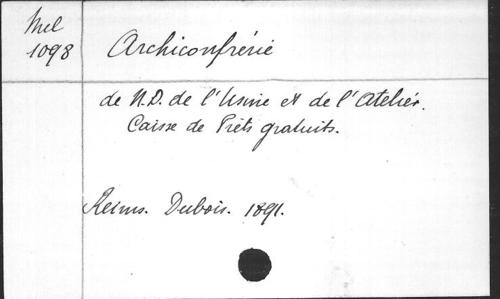 Mel
1098
Archiconfrérie
de N.D. de l'Usine et de l'Atelier.
Caisse de Prêts gratuits.
Reims. Dubois. 1891.